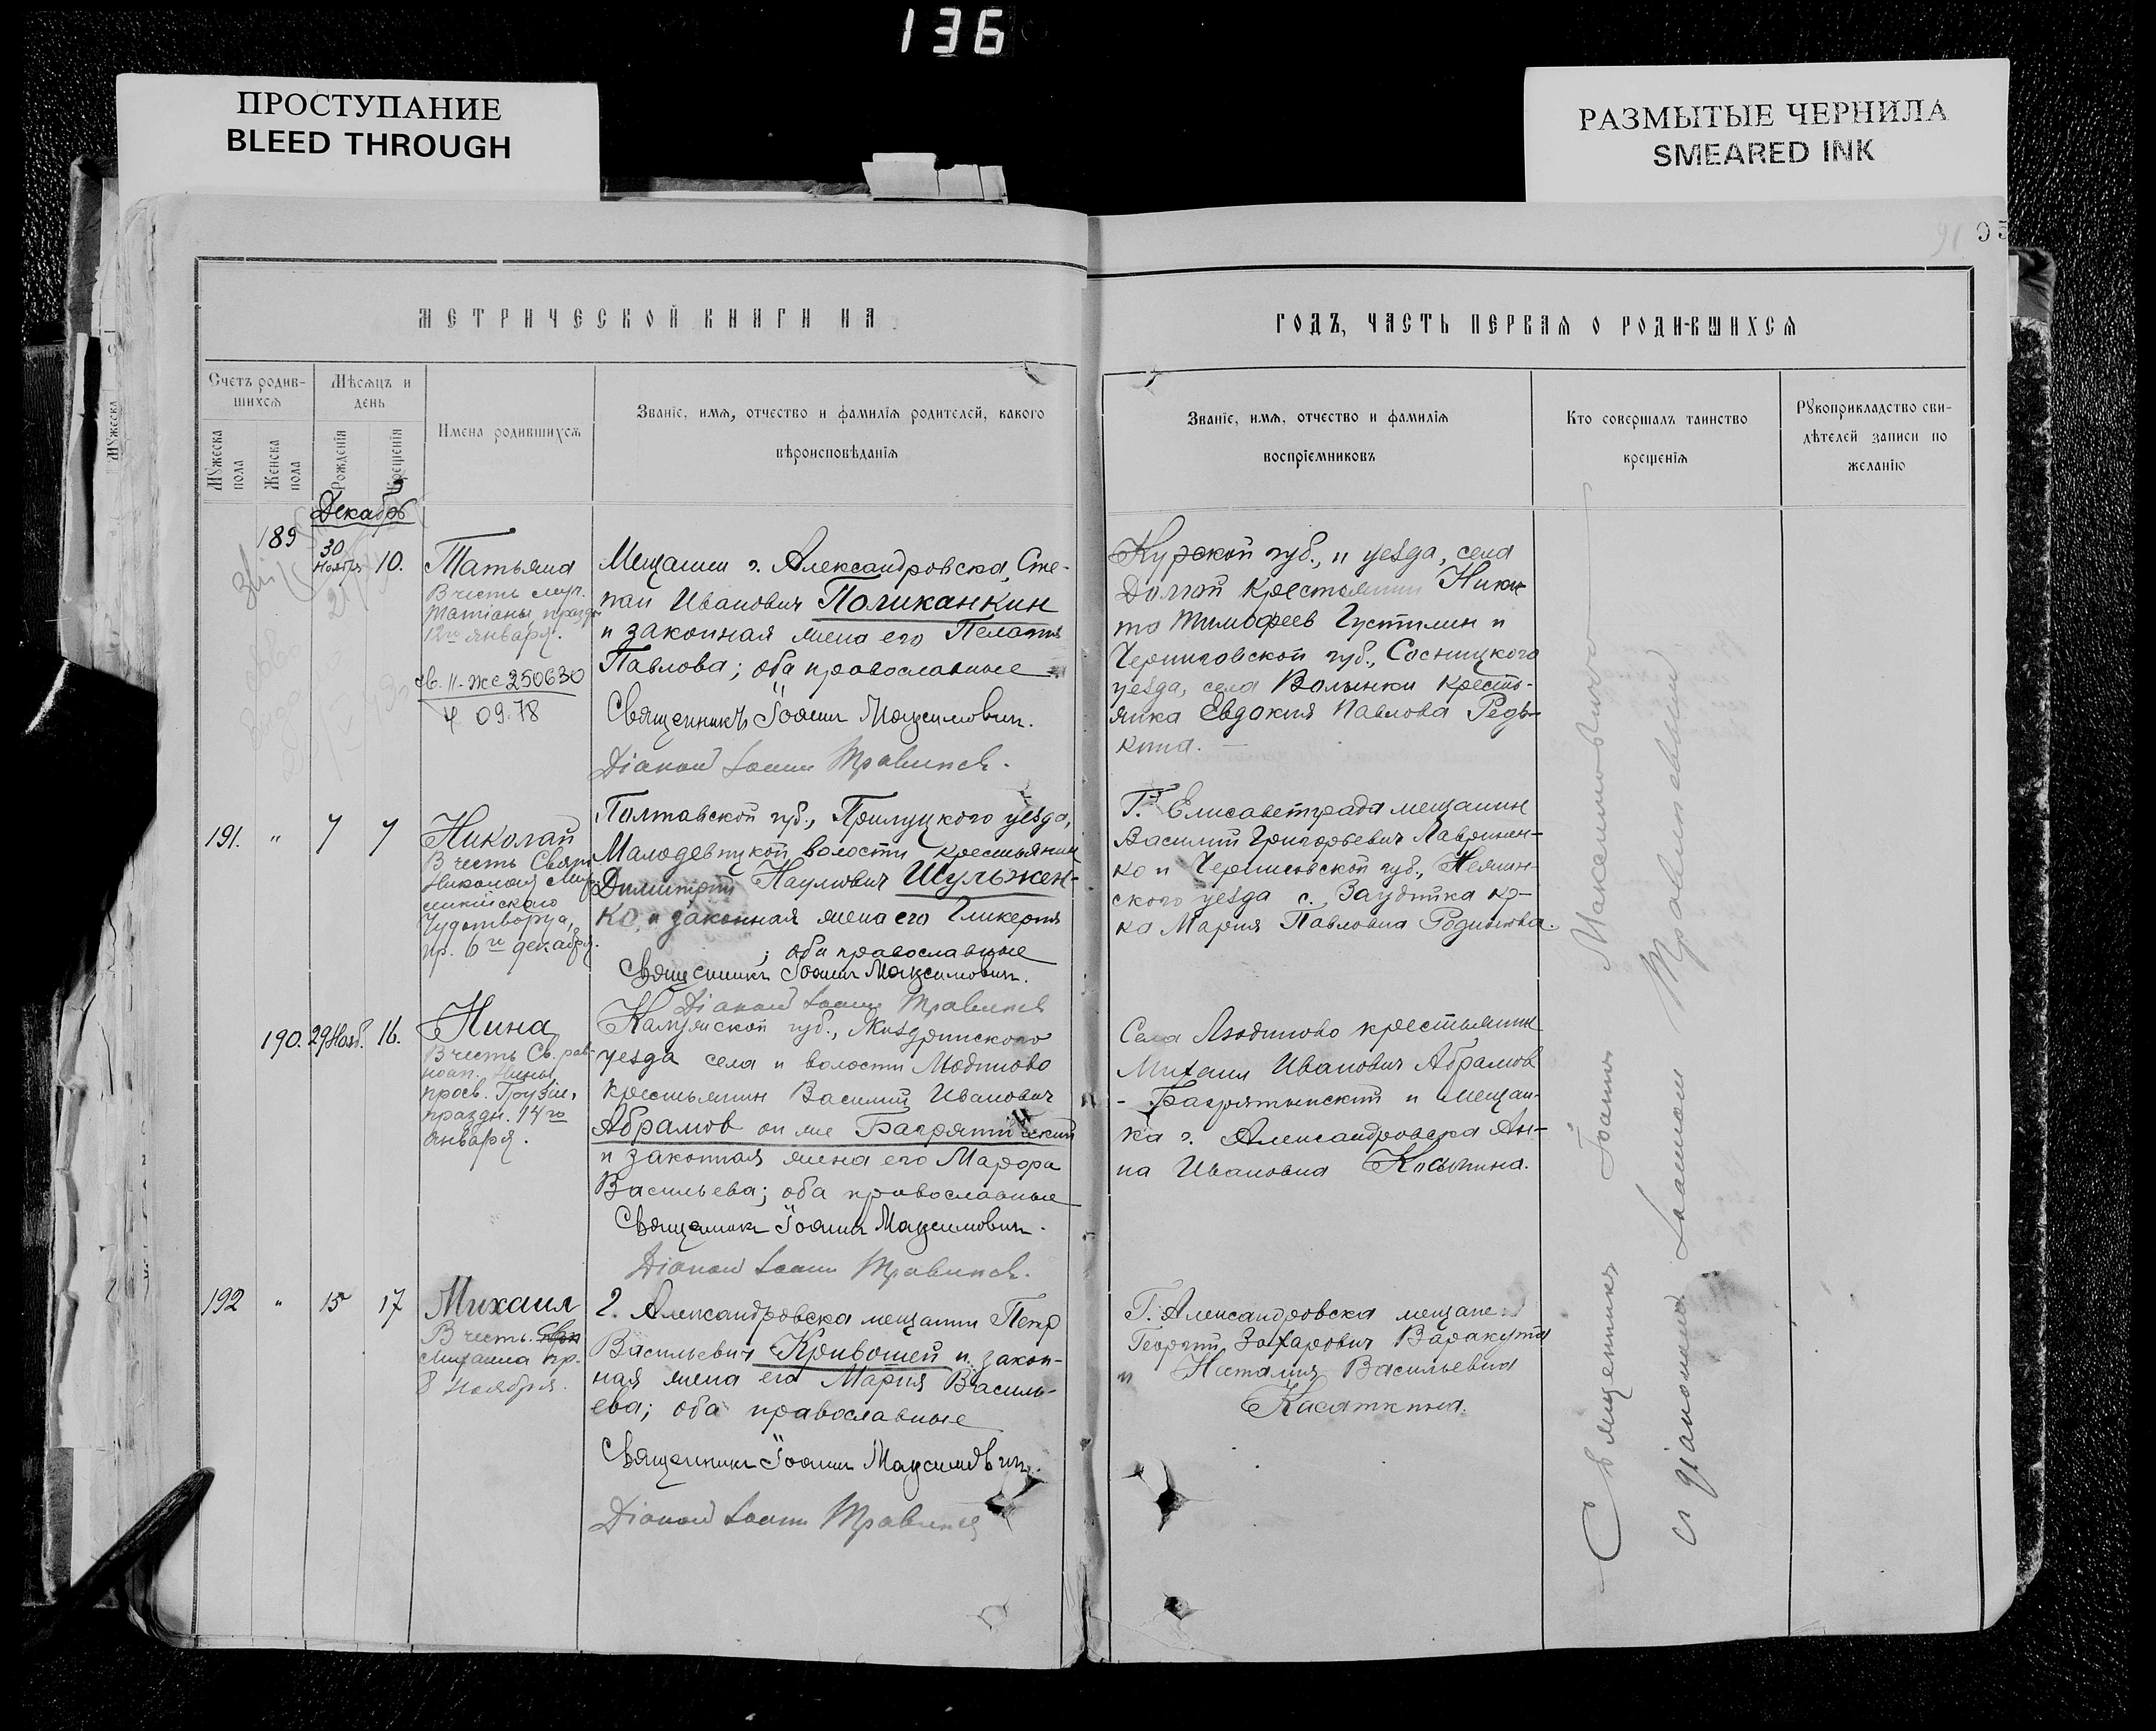 136
ПРОСТУПАНИЕ
BLEED THROUGH
РАЗМЫТЫЕ ЧЕРНИЛА
SMEARED INK
95
МЕТРИЧЕСКОЙ КНИГИ НА
ГОДЪ, ЧАСТЬ ПЕРВАЯ О РОДИВШИХСЯ
Счетъ родив-
шихся
Мѣсяцъ и
день
Мужеска
пола
Женска
пола
Рожденія
Крещенія
Имена родившихся
Званіе, имя, отчество и фамилія родителей, какого
вѣроисповѣданія
Званіе, имя, отчество и фамилія
воспріемниковъ
Кто совершалъ таинство
крещенія
Рукоприкладство сви-
дѣтелей записи по
желанію
Декабрь
189
30
Ноября
10.
Татьяна
В честь муч.
Татіаны, празд.
12го января.
св. II-ЖС 250630
4. 09.78
Мещанин г. Александровска, Сте-
пан Иванович Поликанкин
и законная жена его Пелагия
Павлова; оба православные
Священникъ Іоанн Максимович.
Діакон Іоанн
Курской губ., и уезда, села
Долгой крестьянин Ники-
та Тимофеев Густилин и
Черниговской губ., Сосницкого
уезда, села Волынки кресть-
янка Евдокия Павлова Редь-
кина.
191.
"
7
7
Николай
В честь Свят.
Николая Мир-
ликийского
Чудотворца,
пр. 6го декабря.
Полтавской губ., Прилуцкого уезда,
Малодевицкой волости крестьянин
Димитрий Наумович Шульжен-
ко, и законная жена его Гликерия
; оба православные
Священник Іоанн Максимович.
Діакон Іоанн
Г. Елисаветграда мещанин
Василий Григорьевич Лавринен-
ко и Черниговской губ., Нежин-
ского уезда с. кр-
ка Мария Павловна
190.
29 Нояб.
16.
Нина
В честь Св. рав-
ноап. Нины
просв. Грузии,
праздн. 14го
января.
Калужской губ., Жиздринского
уезда села и волости Людиново
крестьянин Василий Иванович
Абрамов он же
и законная жена его Марфа
Васильева; оба православные
Священник Іоанн Максимович.
Діакон Іоанн
Села Людиново крестьянин
Михаил Иванович Абрамов
- и мещан-
ка г. Александровска Ан-
на Ивановна
192
"
15
17
Михаил
В честь
Михаила пр.
8 ноября.
г. Александровска мещанин Петр
Васильевич Кривошей и закон-
ная жена его Мария Василь-
ева; оба православные
Священник Іоанн Максимович.
Діакон Іоанн
Г. Александровска мещане:
Георгий Захарович Варакута
и Наталия Васильевна
Касаткина.
Священник Іоанн Максимович
с діаконом Іоанном